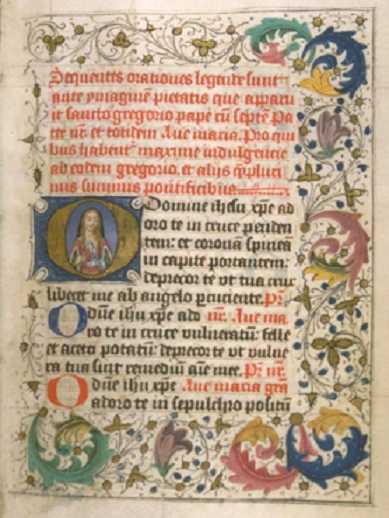 Sequentes orationes legende sunt
ante ymaginē pietatis que apparu
it sancto gregorio pape cū septē Pa
ter nr̄ et totidem Aue maria. Pro qui
bus habent maxime indulgencie
ab eodem gregorio. et aliis q̄pluri
mis summis pontificibus
Domine ihesu xpe ad
oro te in cruce penden
tem: et coronā spineā
in capite portantem:
deprecor te vt tua crux
liberet me ab angelo pcuciente. Pr̄
Dn̄e ihū xpe ado nr̄. Aue ma
ro te in cruce vulneratū: felle
et aceto potatū: deprecor te vt vulne
ra tua sint remediū aīe mee. Pr̄ nr̄.
Dn̄e ihū xpe Aue maria gra
adoro te in sepulchro positū